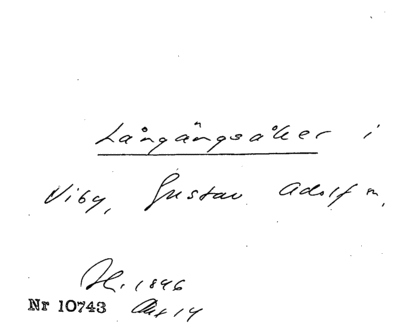 Långängsåker i
Viby, Gustav Adolf m,
1846
Nr 10743 14